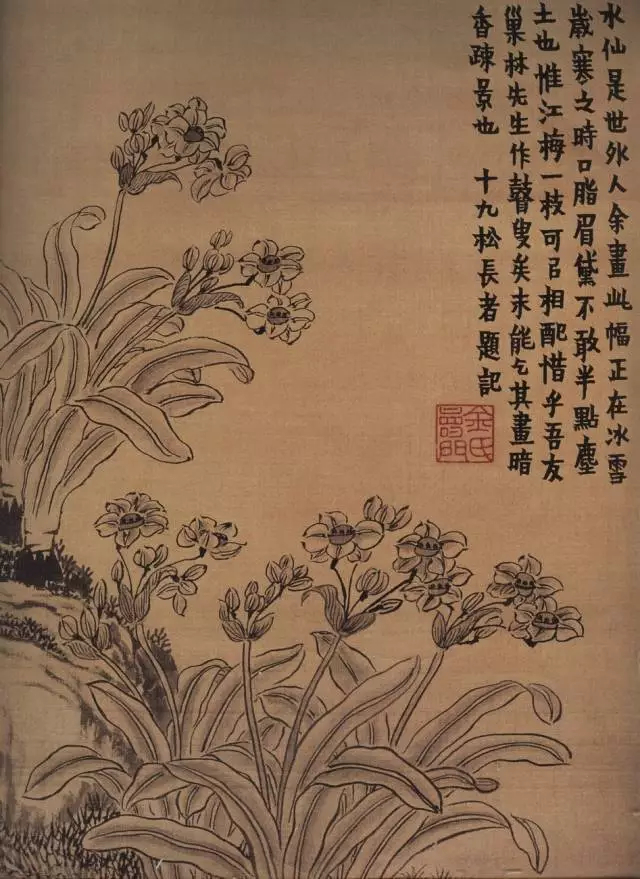 水仙是世外人余畫此幅正在冰雪
嵗寒之時口脂眉黛不敢半點塵
土也惟江梅一枝可㠯相配惜乎吾友
巢林先生作瞽叟矣未能乞其畫暗
香疎景也 十九松長者題記
金氏
壽門